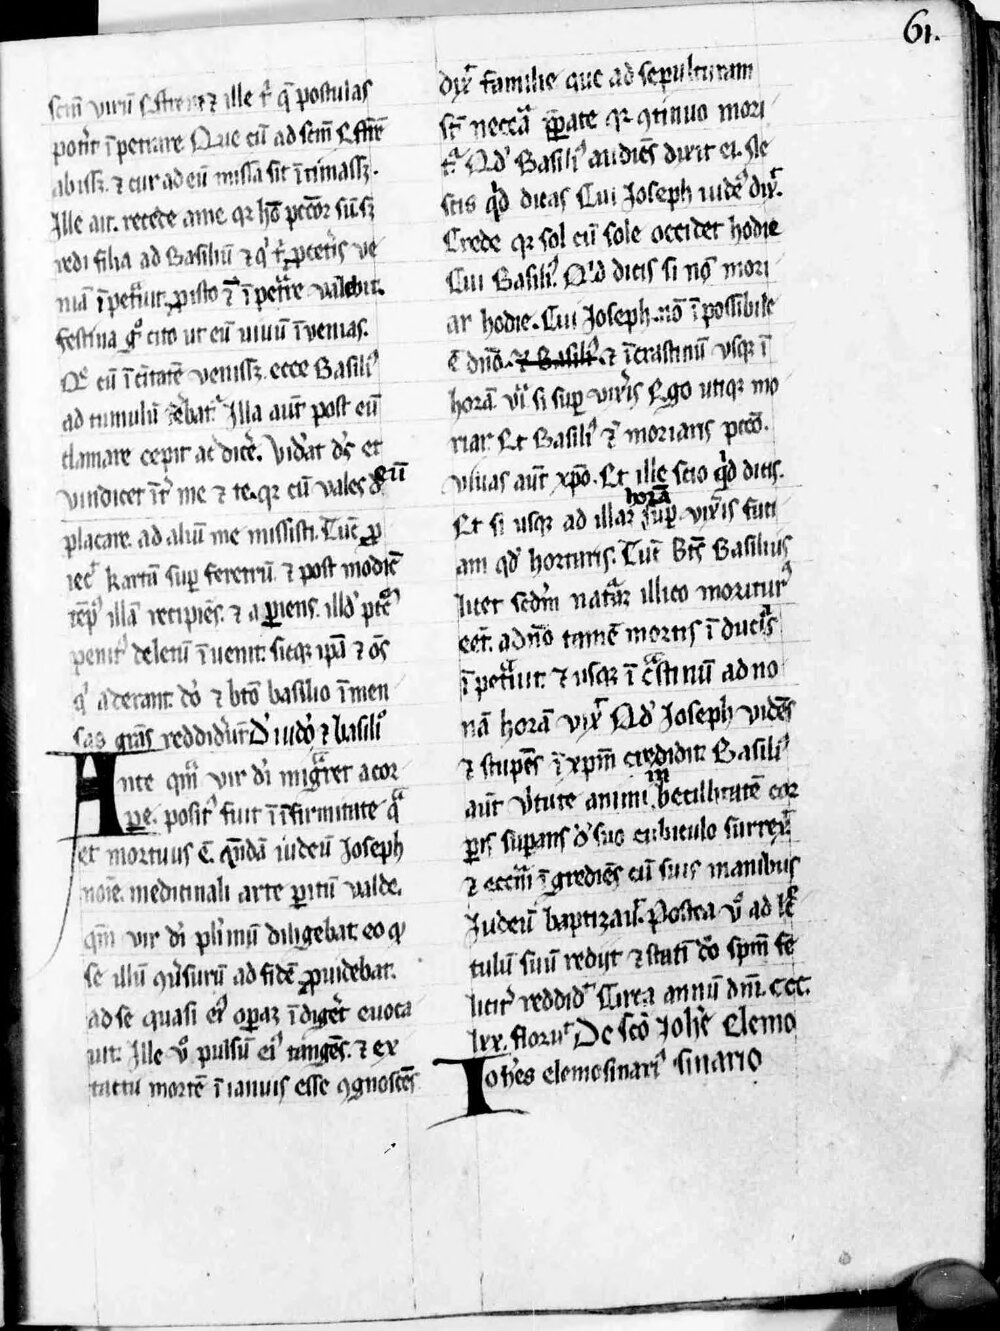 61.
scm̄ virū Effrem ⁊ ille t' q̄ postulas
potīt īpetrare Que cū ad scm̄ Effrē
abissꝫ. ⁊ cur ad eū missa sit ītimassꝫ.
Ille ait. recede a me qꝛ hō pctōr sū. sꝫ
redi filia ad Basiliū ⁊ q' t' p cet'is ve
niā īpet̄uit. ꝓ isto
festina g° cito ut eū uiuū īvenias.
Q' cū ī citatē venissꝫ. ecce Basili'
ad tumulū Illa aūt post eū
clamare cepit ac dic'e. Vid'at d's et
vindicet īt' me ⁊ te. qꝛ cū vales d'eū
placare. ad aliū me missisti. Tūc ꝓ
iec' kartā suꝑ feretrū. ⁊ post modic̄
tēp' illā recipiēs. ⁊ aꝑiens. illd'
penit' deletū īuenit. sicqꝫ ip̄a ⁊ oēs
q' aderant. d'o ⁊ btō basilio īmen
sas grās reddid'ūt D' iud'o ⁊ basili'
Ante qm̄ vir d'i mig̊ret a cor
ꝑe. posit' fuit ī īfirmitate q̊
et mortuus ē. quendā iudeū Joseph
noīe. medicinali arte ꝑitū valde.
qm̄ vir d'i pl'imū diligebat eo qꝫ
se illū 9ūsurū ad fidē ꝓuidebat.
ad se quasi ei' opaꝫ īdig'et euoca
uit. Ille v° pulsū ei' tangēs. ⁊ ex
tactu mortē ī ianuis esse 9gnoscēs
dix̄ familie que ad sepulturam
st' necc̄a ꝑpate qꝛ 9tinuo mori
t'. Qd' Basili' audiēs dixit ei. Ne
scis q'd dicas Cui Joseph iude' dix̄.
Crede qꝛ sol cū sole occidet hodie
Cui Basili'. Q'd dicis si nō mori
ar hodie. Cui Joseph. nō īpossibile
ē dn̄o. ⁊ Basili'. ⁊ ī crastinū usqꝫ ī
horā. vi si suꝑ vix'is Ego utiqꝫ mo
riar Et Basili' ⁊ moriaris pctō.
viuas aūt xp̄o. Et ille scio q'd dicis.
Et si usqꝫ ad illaꝫ horā suꝑ. vix'is faci
am qd' hortaris. Tūc bt̄s Basilius
licet scd'm nat̊ꝫ illico moritur'
eēt. ad n̄o tamē mortis īducias
īpet̊uit. ⁊ usqꝫ ī c̊stinū ad no
nā horā vix̄ Qd' Joseph vidēs
⁊ stupēs ī xp̄m credidit. Basili'
aūt v'tute animi imbecillitatē cor
ꝑis suꝑans d' suo cubiculo surrex̄
⁊ eccm̄ īgrediēs cū suis manibus
Judeū baptizauit. Postea v° ad lc̄
tulū suū redijt ⁊ statī d'o spm̄ fe
licit' reddid' Circa annū dm̄. ccc.
lxx. floruit De scō Joh'e Elemo
Joh'es elemosinari' sinario